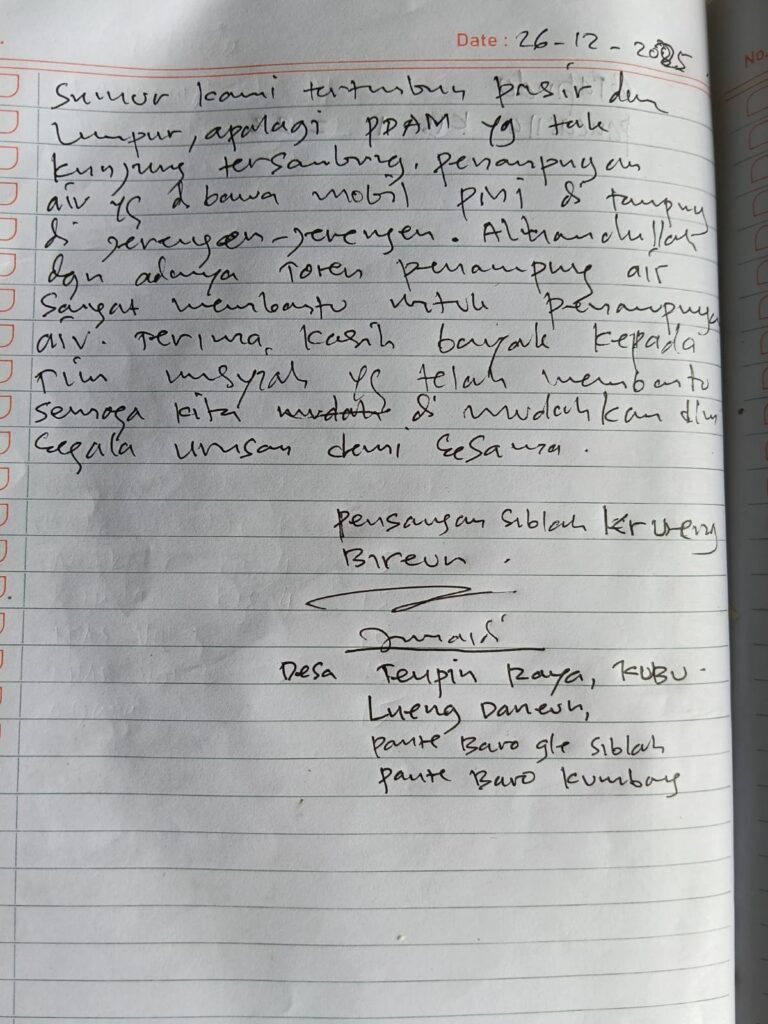 Date : 26-12-2025
No.
Sumur kami tertimbun pasir dan
lumpur, apalagi PDAM yg tak
kunjung tersambung. penampungan
air yg d bawa mobil PMI di tampung
di jerengen-jerengen. Alhamdulillah
dgn adanya Toren penampung air
sangat membantu untuk penampunya
air. Terima kasih banyak kepada
Tim yg telah membantu
semoga kita mudah di mudahkan dlm
segala urusan demi sesama.
Peusangan Siblah Krueng
Bireun.
Junaidi
Desa Teupin Raya, KUBU
Lueng Daneun,
pante Baro gle siblah
pante Baro kumbang